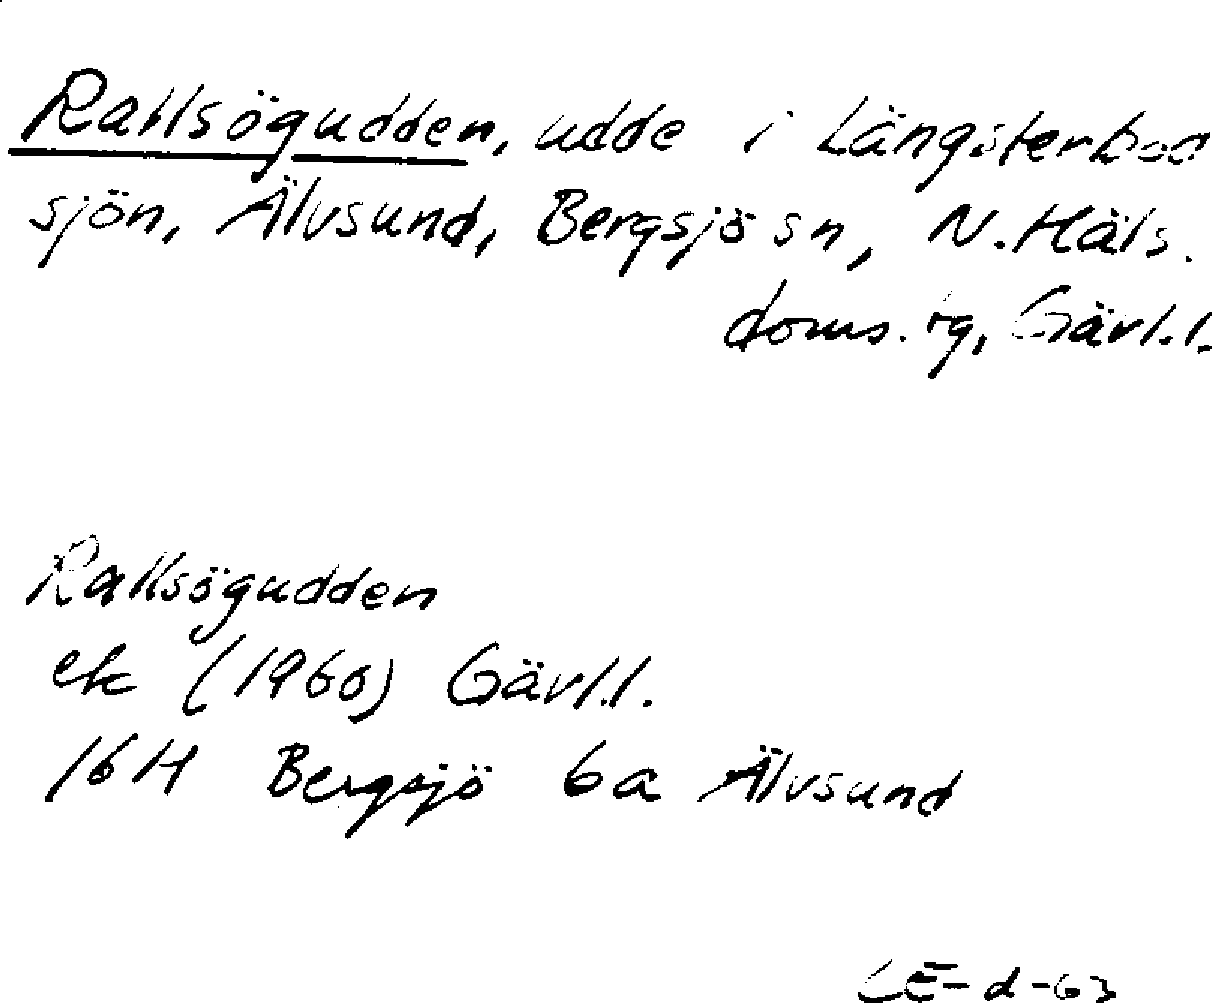 Rallsögudden, udde i Långsterbod
sjön, Älvsund, Bergsjö sn, N. Häls.
doms. tg, Gävl.l.
Rallsögudden
ek (1960) Gävl.l.
16H Bergsjö 6a Älvsund
LE-d-63